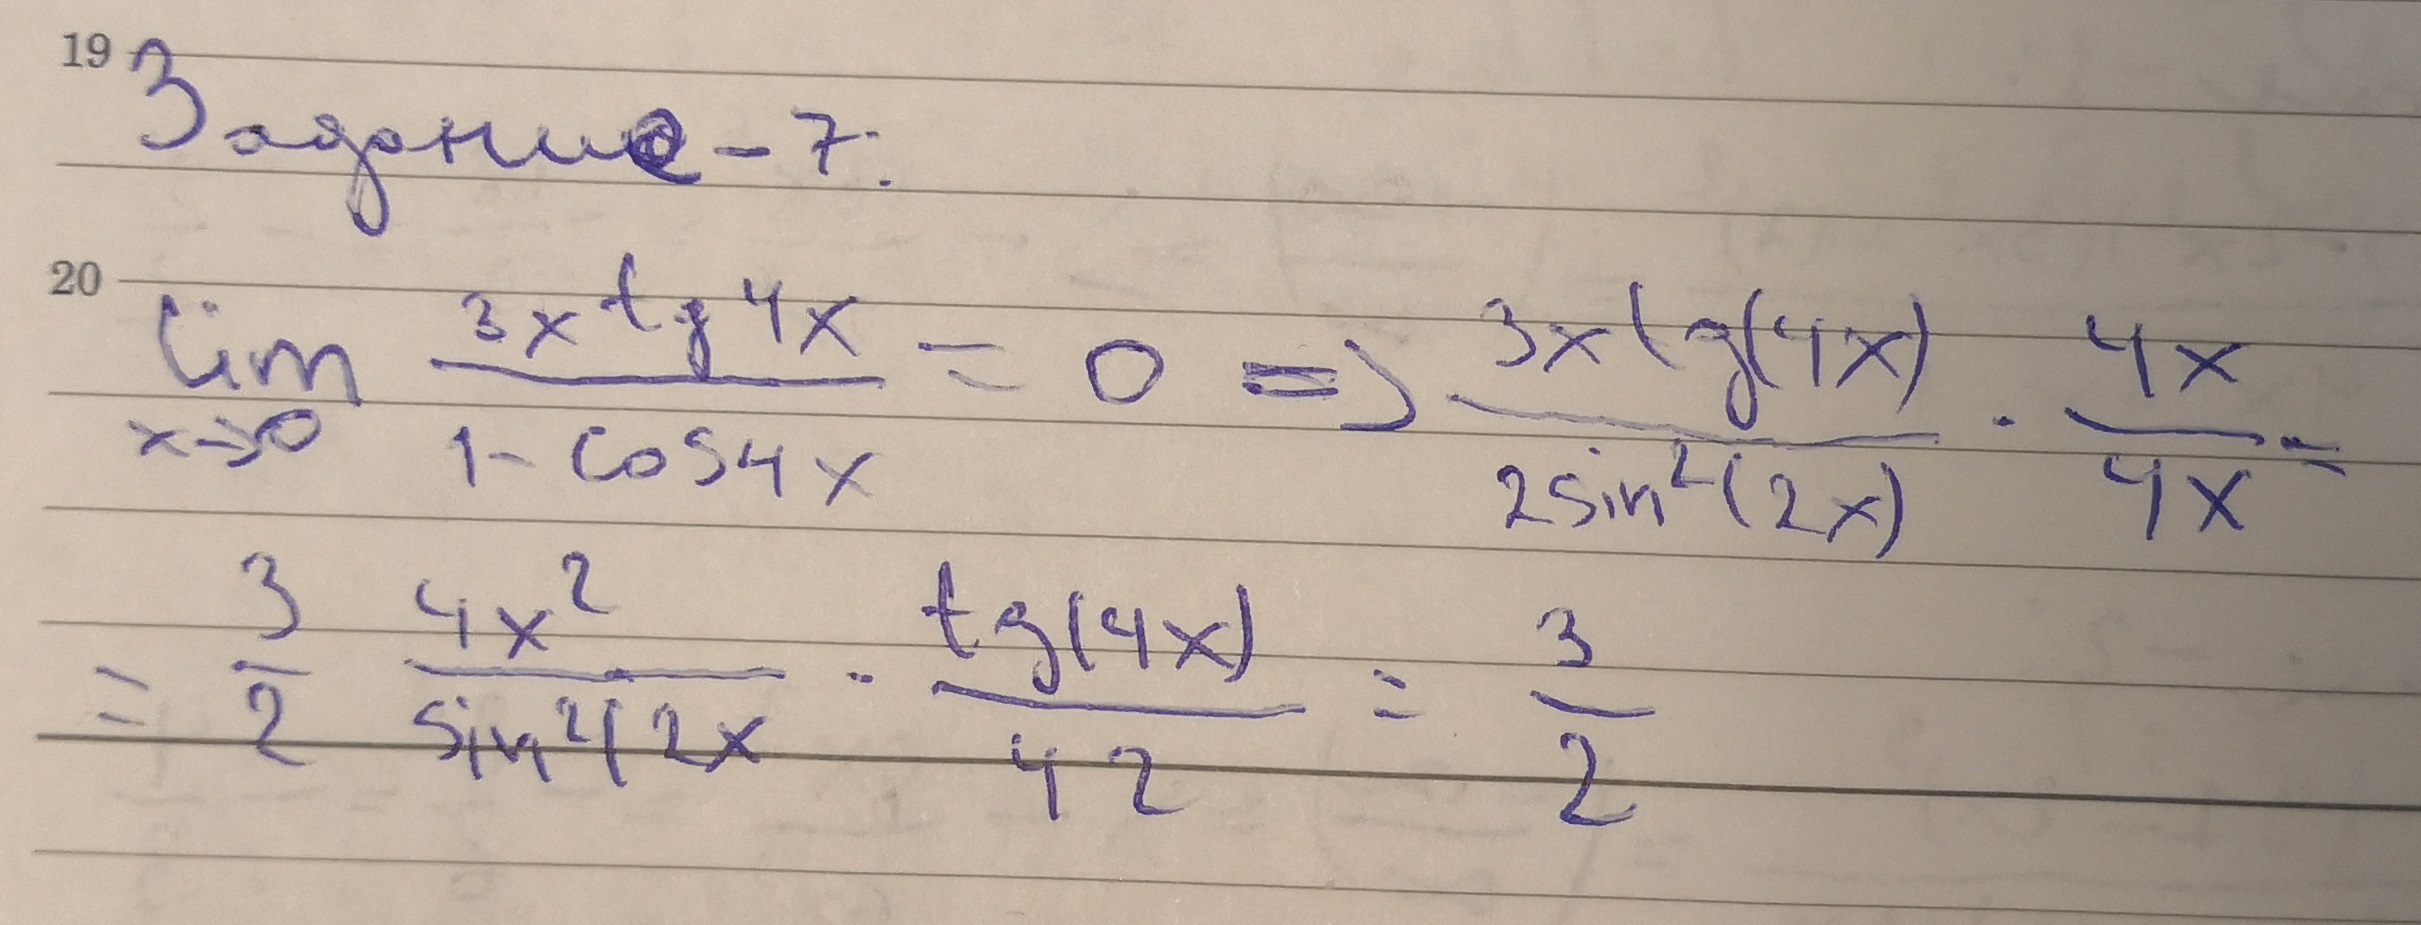 19
Задание-7:
20
lim x→0 3x tg 4x / 1 - cos 4x = 0 => 3x tg(4x) / 2 sin²(2x) · 4x / 4x =
= 3/2 4x² / sin²(2x · tg(4x) / 42 = 3/2